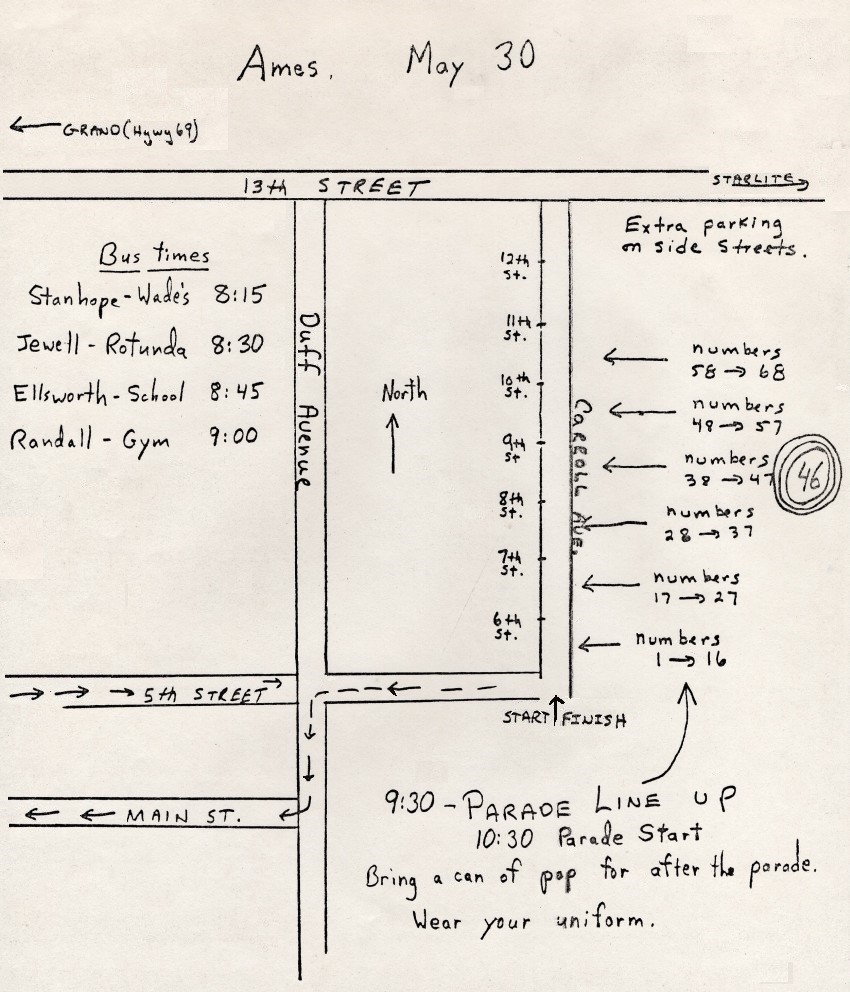 Ames. May 30
GRAND (Hywy 69)
13th STREET
STARLITE
Extra parking
on side Streets.
Bus times
Stanhope - Wade's 8:15
Jewell - Rotunda 8:30
Ellsworth - School 8:45
Randall - Gym 9:00
Duff Avenue
North
12th
St.
11th
St.
10th
St.
9th
St
8th
St.
7th
St.
6th
St.
CARROLL AVE.
numbers
58 → 68
numbers
48 → 57
numbers
38 → 47
46
numbers
28 → 37
numbers
17 → 27
numbers
1 → 16
5th STREET
START FINISH
MAIN ST.
9:30 - PARADE LINE UP
10:30 Parade Start
Bring a can of pop for after the parade.
Wear your uniform.